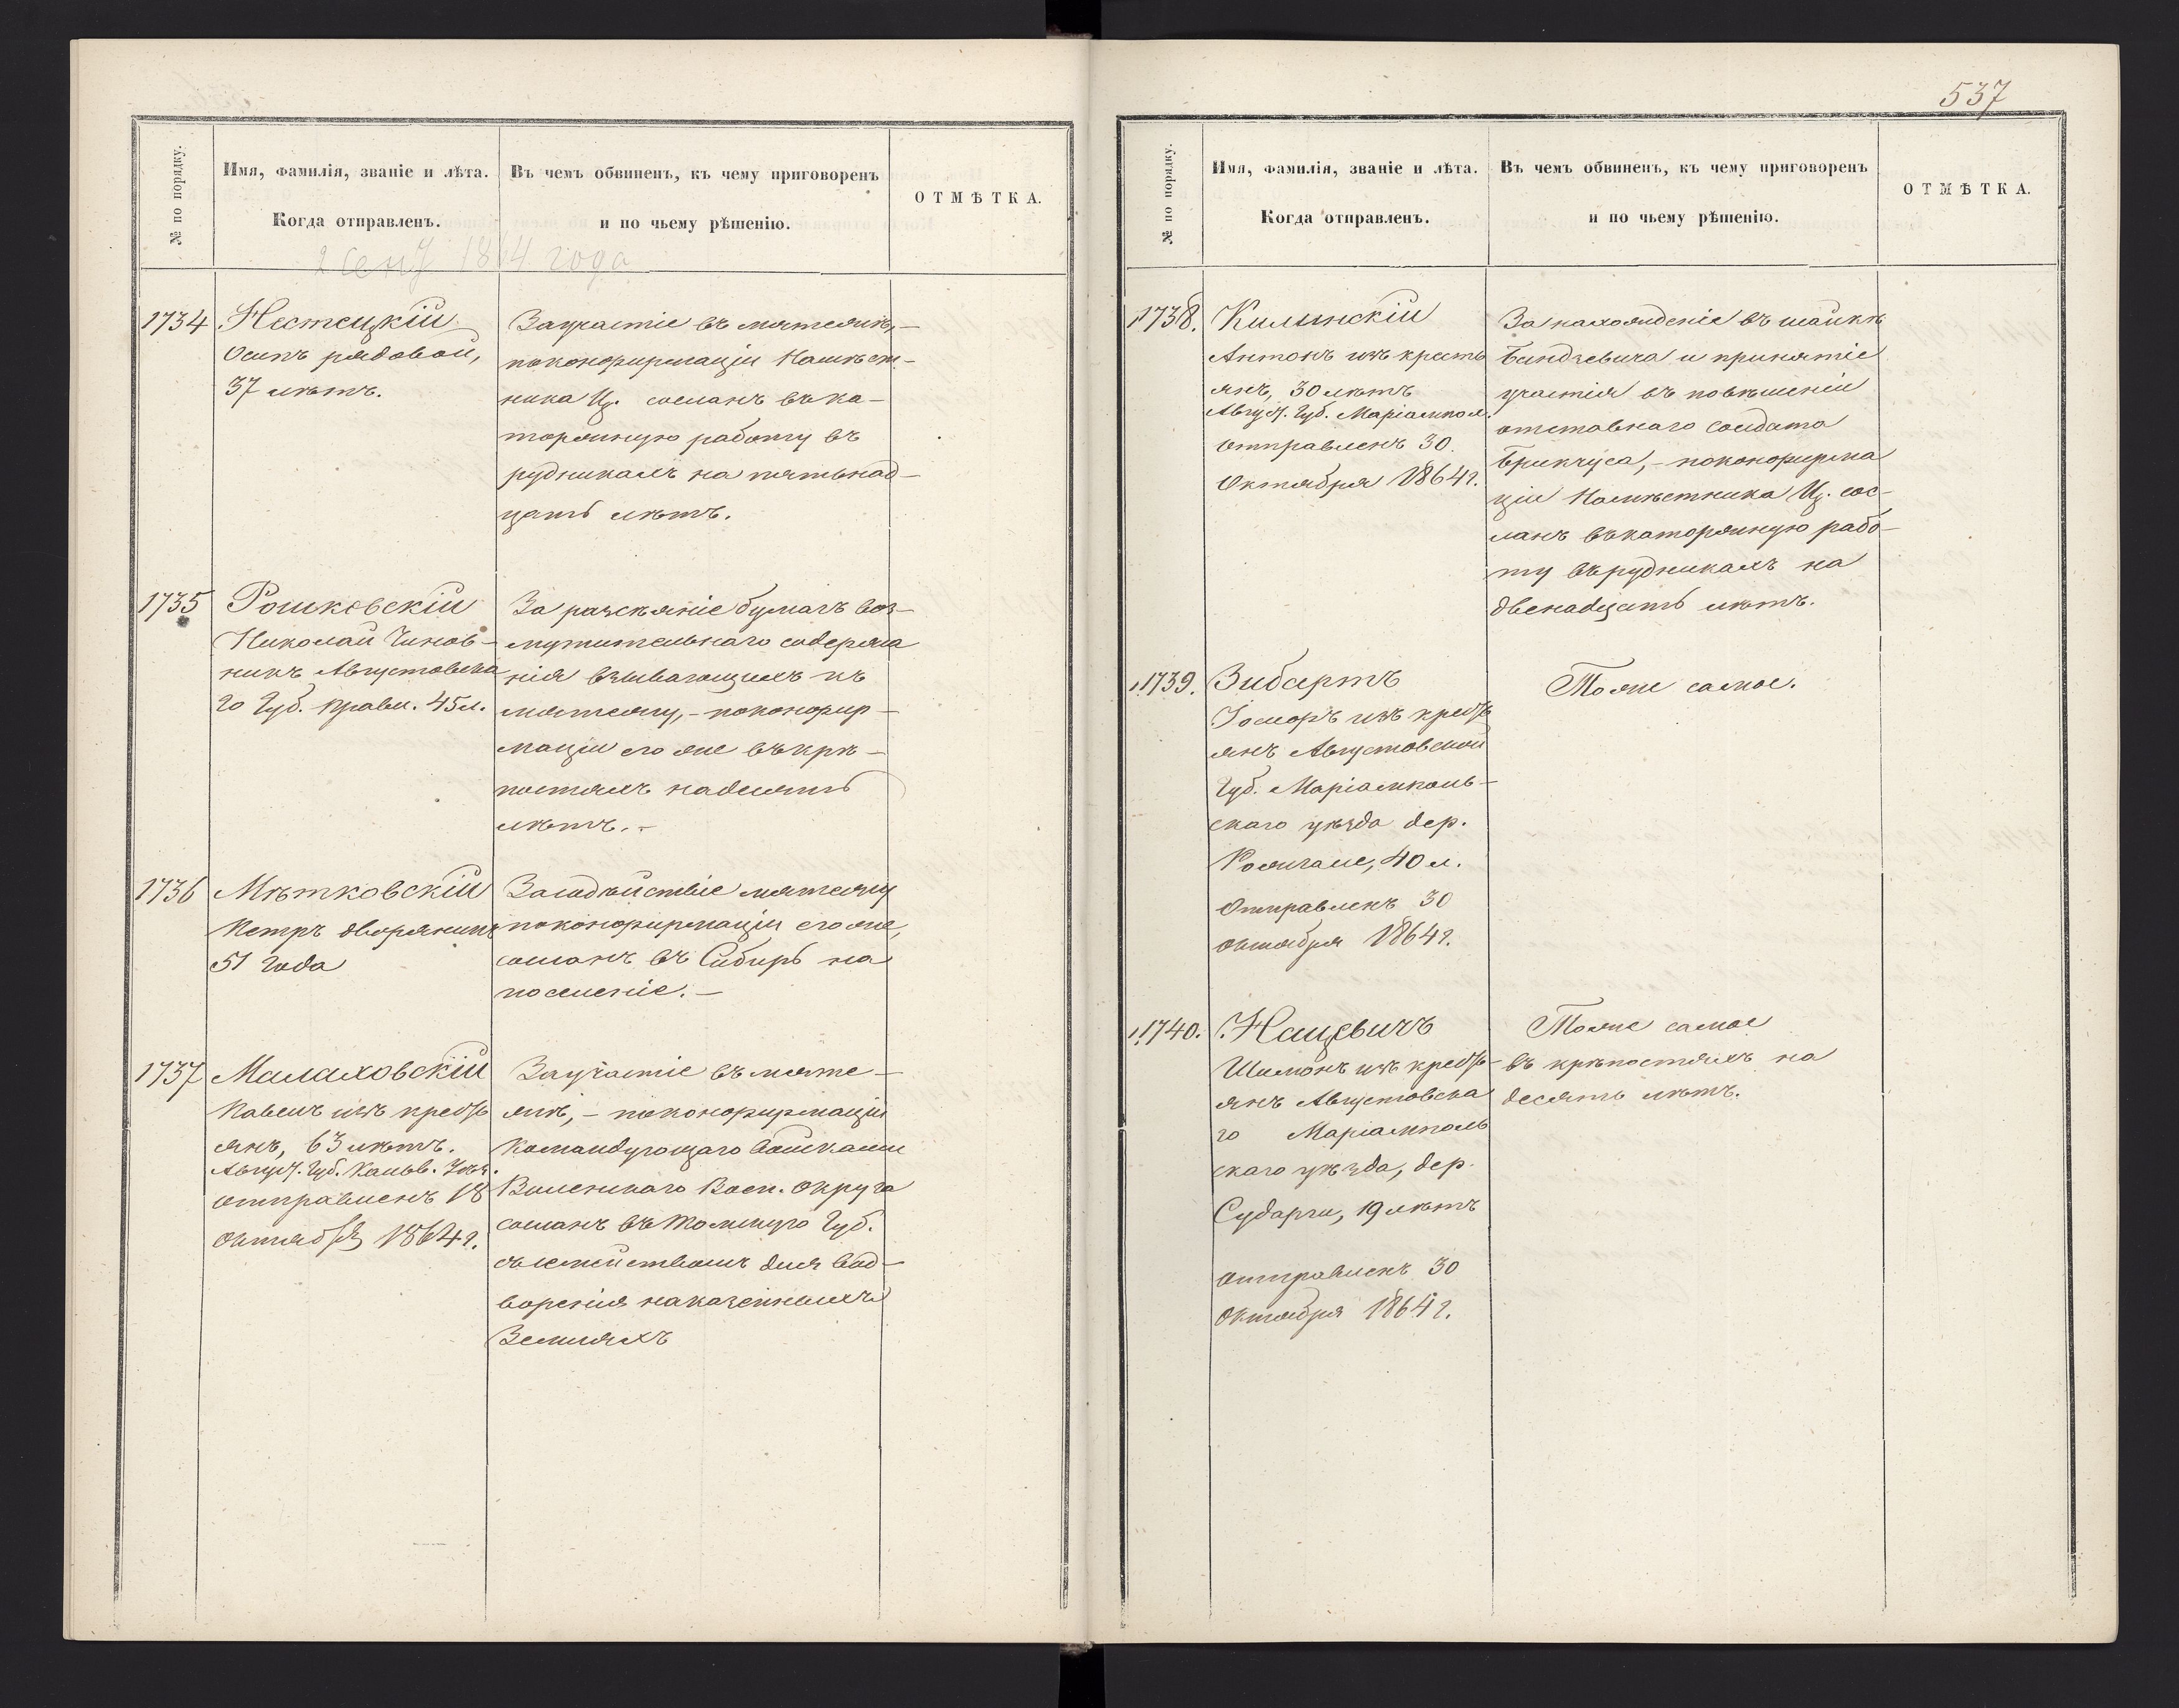 537
№ по порядку.
Имя, фамилія, званіе и лѣта.
Когда отправленъ.
Въ чемъ обвиненъ, къ чему приговоренъ
и по чьему рѣшенію.
ОТМѢТКА.
1864 года
1734
Нестецкій
Осипъ рядовой,
37 лѣтъ.
За участіе въ мятежѣ,—
по конфирмаціи Намѣст-
ника Ц. сосланъ въ ка-
торжную работу въ
рудникахъ на пятьнад-
цать лѣтъ.
1735
Рошковскій
Николай Чинов-
никъ Августовска
го Губ. Правл. 45 л.
За разсѣяніе бумагъ воз-
мутительнаго содержа
нія взывающихъ къ
мятежу,- по конфир-
маціи его же въ крѣ-
постяхъ на десять
лѣтъ.-
1736
Мѣтковскій
Петръ дворянинъ
51 года
За содѣйствіе мятежу
по конфирмаціи его же,
сосланъ въ Сибирь на
поселеніе.—
1737
Малаховскій
Павелъ изъ кресть
янъ, 63 лѣтъ.
Август. Губ. Кальв. Уѣз.
отправленъ 18
октября 1864 г.
За участіе въ мяте-
жѣ,- по конфирмаціи
Командующаго войсками
Виленскаго Воен. Округа
сосланъ въ Томскую Губ.
съ семействомъ для вод-
воренія на казенныхъ
Земляхъ
№ по порядку.
Имя, фамилія, званіе и лѣта.
Когда отправленъ.
Въ чемъ обвиненъ, къ чему приговоренъ
и по чьему рѣшенію.
ОТМѢТКА.
1738.
Килынскій
Антонъ изъ кресть
янъ, 30 лѣтъ
Август. Губ. Маріампол.
отправленъ 30
Октября 1864 г.
За нахожденіе въ шайкѣ
Биндзевича и принятіе
участія въ повѣшеніи
отставнаго солдата
Брикчуса,- по конфирма
ціи Намѣстника Ц. сос-
ланъ въ каторжную рабо-
ту въ рудникахъ на
двенадцать лѣтъ.
1739.
Зибертъ
изъ кресть
янъ Августовской
Губ. Маріамполь-
скаго уѣзда дер.
40 л.
Отправленъ 30
октября 1864 г.
Тоже самое.
1740.
Нацевичъ
Шимонъ изъ кресть-
янъ Августовска
го Маріамполь
скаго уѣзда, дер.
Сударги, 19 лѣтъ
отправленъ 30
Октября 1864 г.
Тоже самое
въ крѣпостяхъ на
десять лѣтъ.